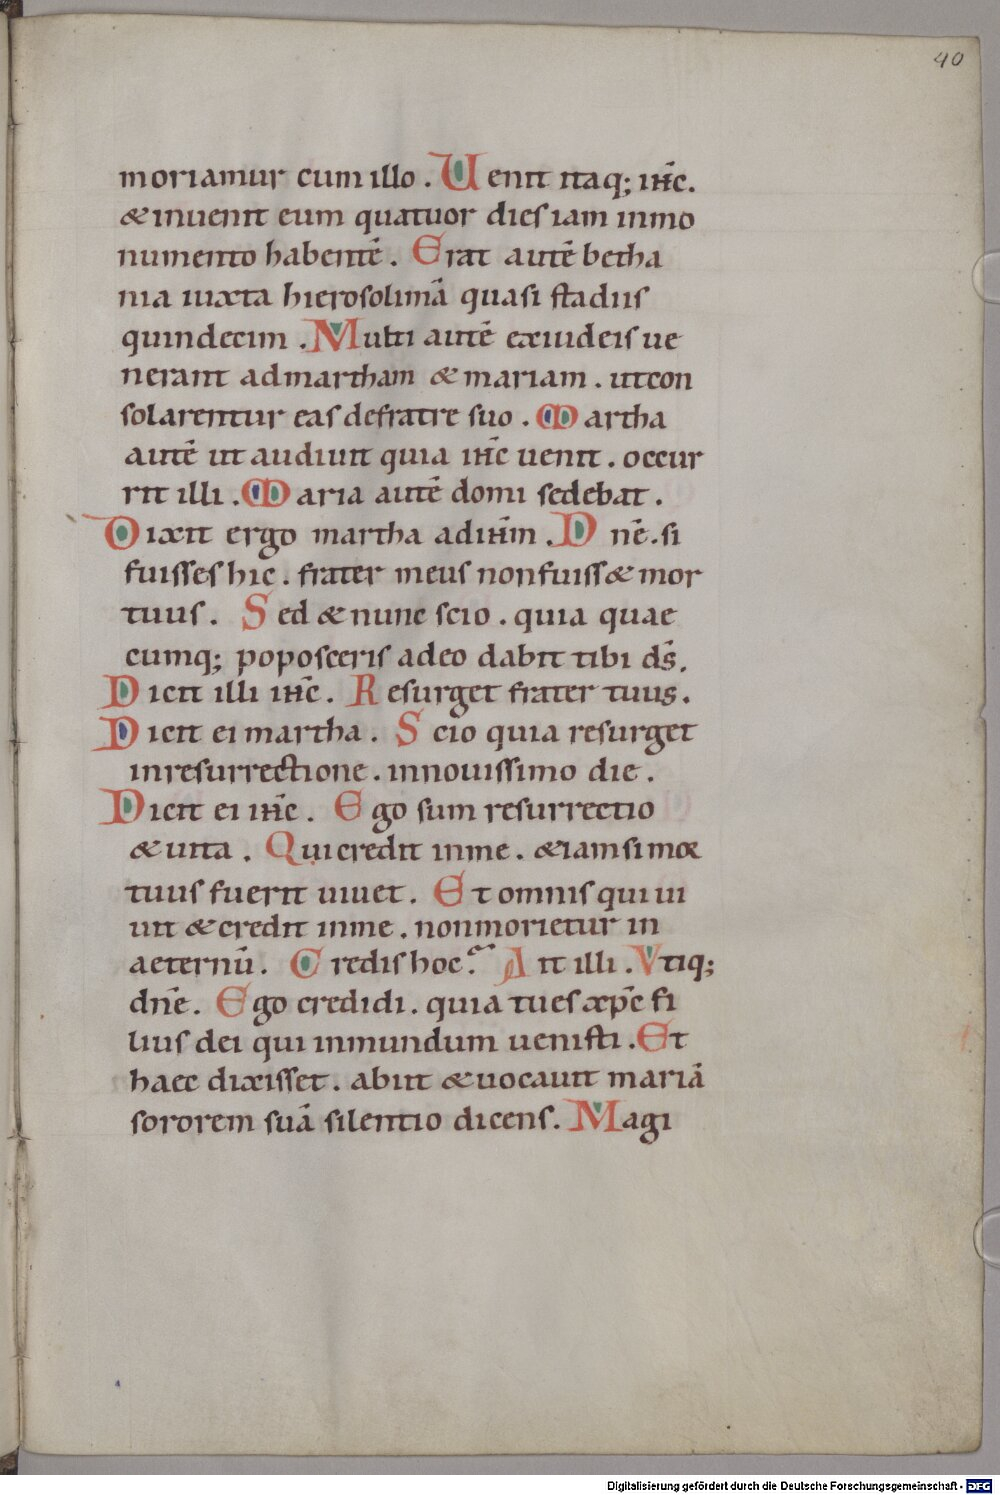 40
moriamur cum illo. Uenit itaq; ihc̄.
& inuenit eum quatuor dies iam inmo
numento habentē. Erat autē betha
nia iuxta hierosolimā quasi stadiis
quindecim. Multi autē exiudeis ue
nerant admartham & mariam. utcon
solarentur eas defratre suo. Martha
autē ut audiuit quia ihc̄ uenit. occur
rit illi. Maria autē domi sedebat.
Dixit ergo martha adihm̄. Dnē. si
fuisses hic. frater meus nonfuiss& mor
tuus. Sed & nunc scio. quia quae
cumq; poposceris adeo dabit tibi ds̄.
Dicit illi ihc̄. Resurget frater tuus.
Dicit ei martha. Scio quia resurget
inresurrectione. innouissimo die.
Dicit ei ihc̄. Ego sum resurrectio
& uita. Qui credit inme. &iam si mor
tuus fuerit uiuet. Et omnis qui ui
uit & credit inme. nonmorietur in
aeternū. Credis hoc? Ait illi. Vtiq;
dnē. Ego credidi. quia tues xpc̄ fi
lius dei qui inmundum uenisti. Et
haec dixisset. abiit & uocauit mariā
sororem suā silentio dicens. Magi
Digitalisierung gefördert durch die Deutsche Forschungsgemeinschaft - DFG